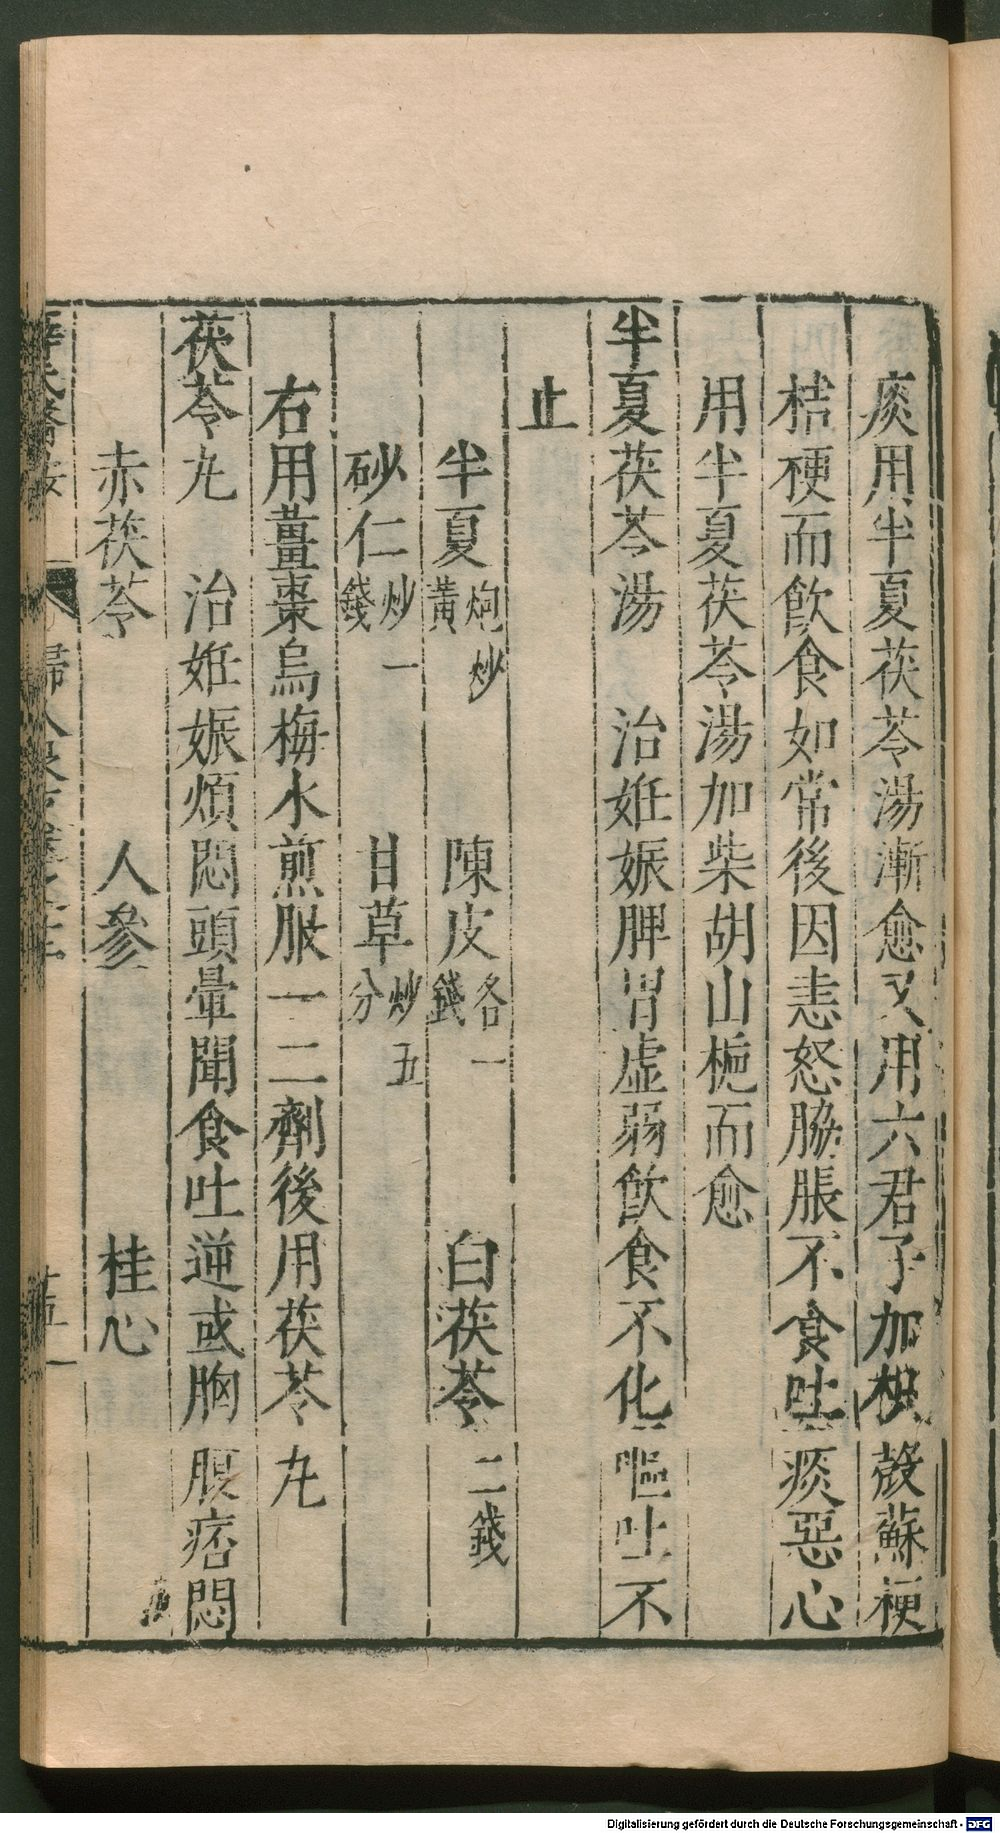 痰用半夏茯苓湯漸愈又用六君子加枳殼蘇梗
桔梗而飲食如常後因恚怒脇脹不食吐痰惡心
用半夏茯苓湯加柴胡山梔而愈
半夏茯苓湯 治姙娠脾胃虛弱飲食不化嘔吐不
止
半夏炮炒黃 陳皮各一錢 白茯苓二錢
砂仁炒一錢 甘草炒五分
右用薑棗烏梅水煎服一二劑後用茯苓丸
茯苓丸 治姙娠煩悶頭暈聞食吐逆或胸腹痞悶
赤茯苓 人參 桂心
薛氏醫按 婦人良方卷之十二 五一
Digitalisierung gefördert durch die Deutsche Forschungsgemeinschaft - DFG